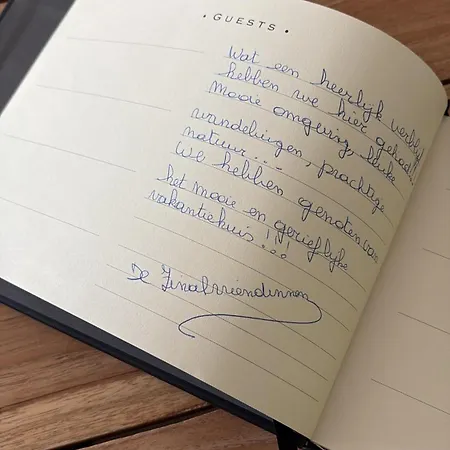 • GUESTS •
Wat een heerlijk verblijf
hebben we hier gehad!
Mooie omgeving, leuke
wandelingen, prachtige
natuur...
We hebben genoten van
het mooie en gerieflijke
vakantiehuis!!!
De